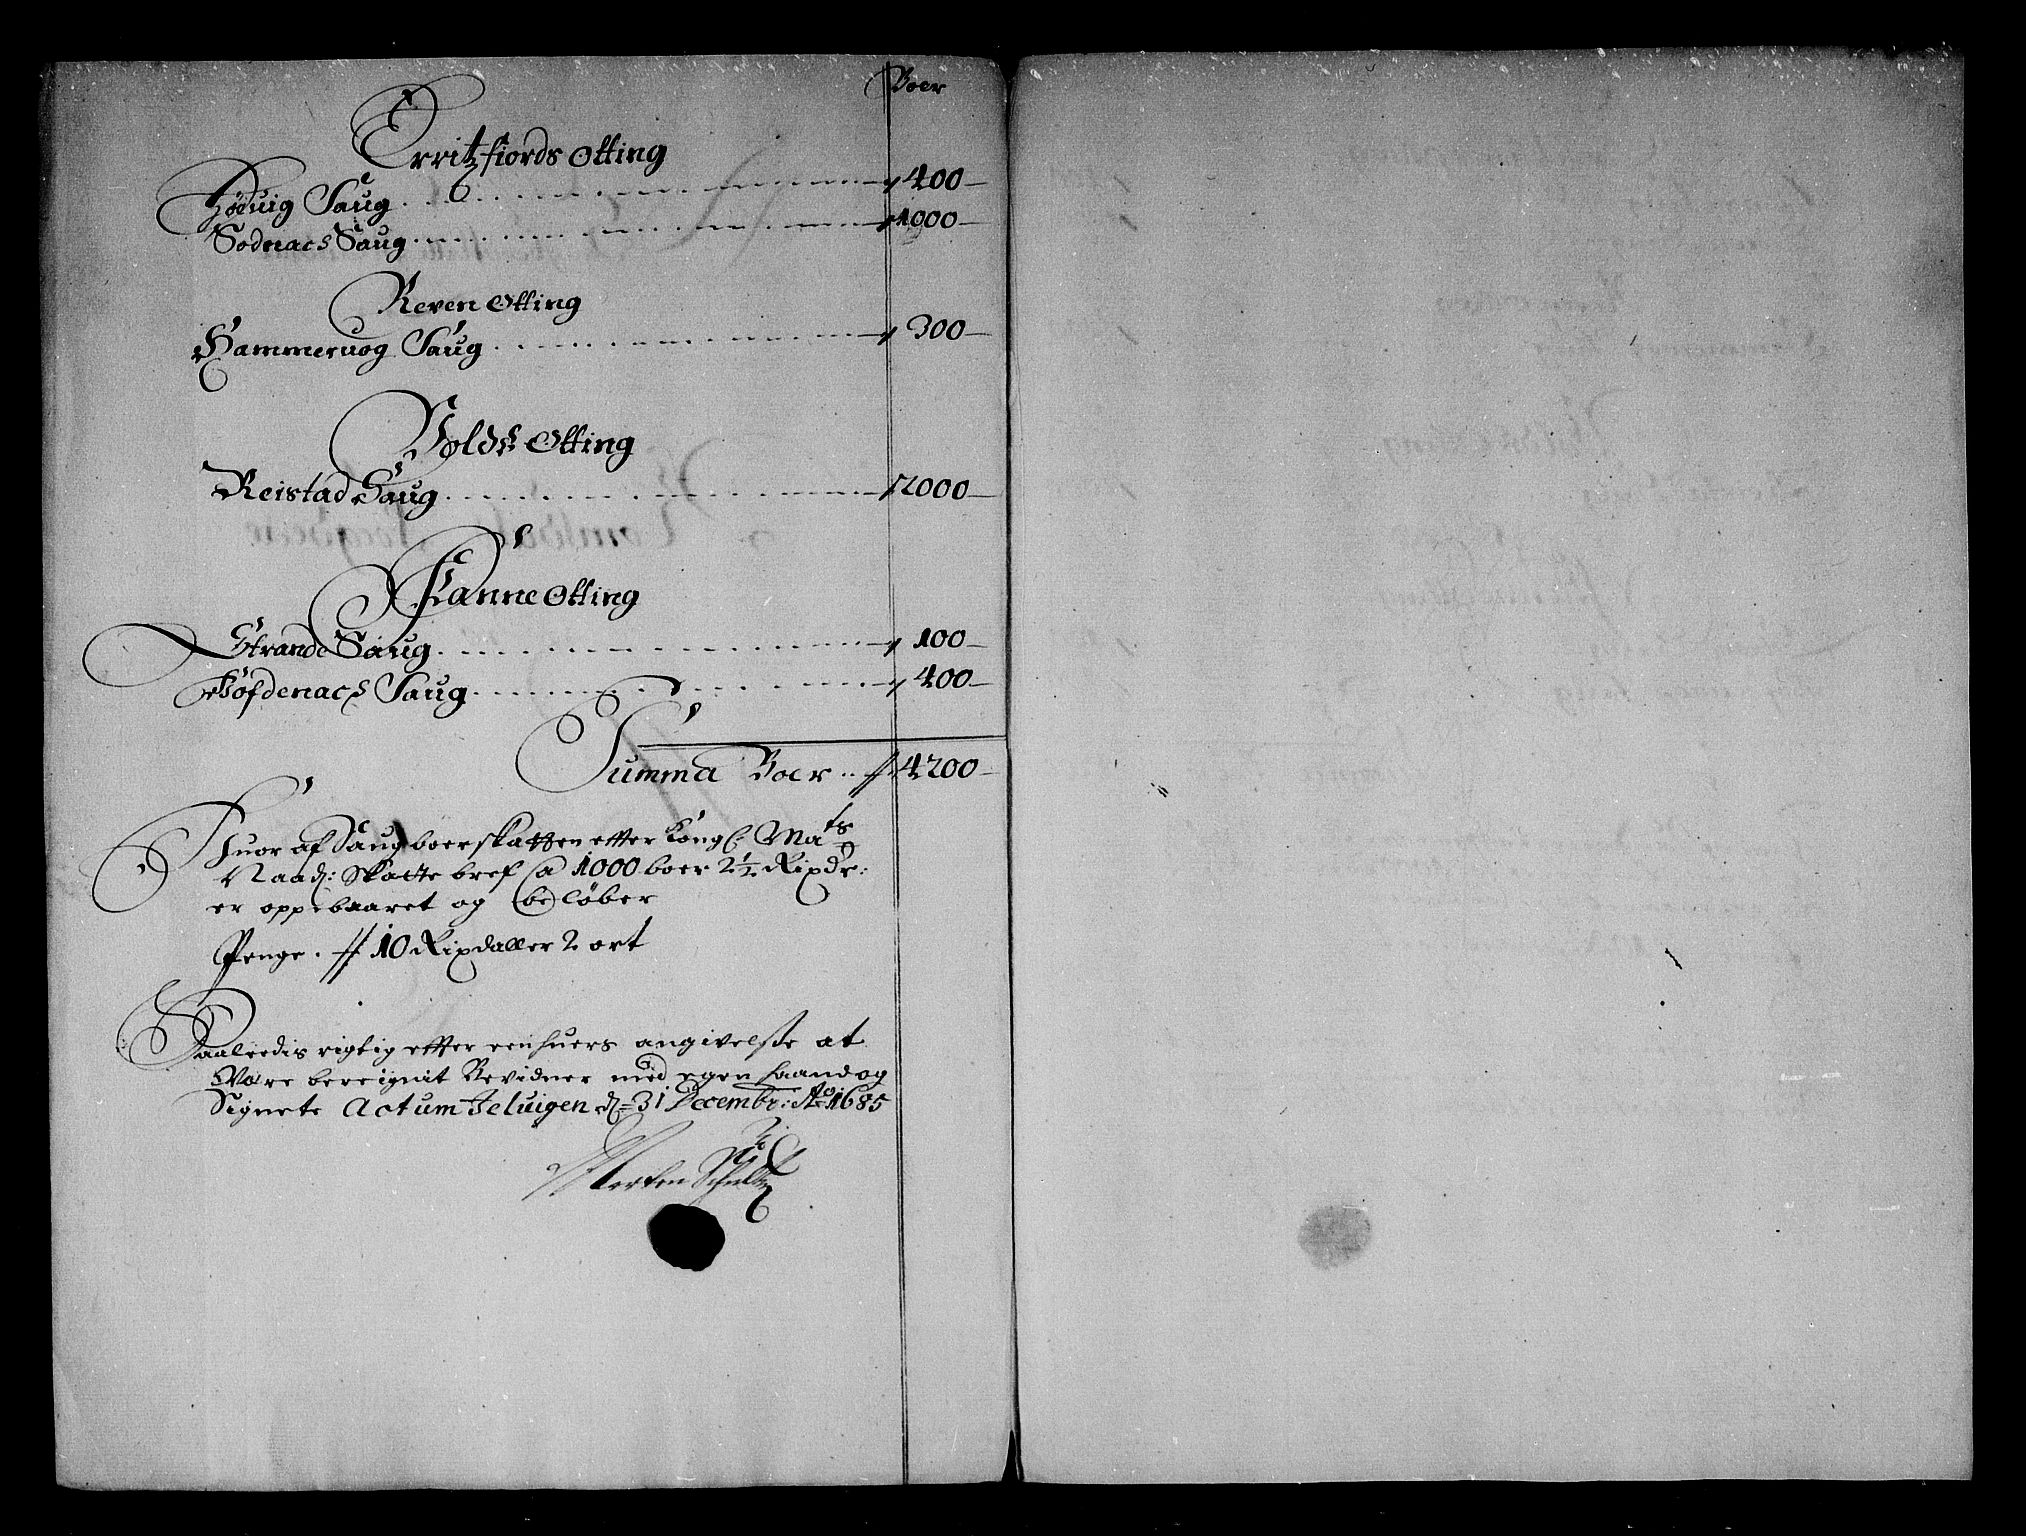 Boer
Erritzfiords Otting
Höeuig Saug 400
Sodnacs Saug 1000
Reven Otting
Hammeruog Saug 300
Volds Otting
Reistad Saug 2000
Hanne Otting
Strande Saug 100
Höfdenacs Saug 400
Summa Boer 4200
Huor af Saugboerskatten etter Kongl: Mats
Naad: Skatte bref @ 1000 boer 2½ Rixdr:
er oppebaaret og beløber
Penge . // 10 Rixdaller 2 ort
Saaleedis rigtig efter een huers angivelse at
Være bereignit Bevidner med egen haand og
Signete Actum Jeluigen d= 31 Decembr: Ao 1685
Morten Schultz